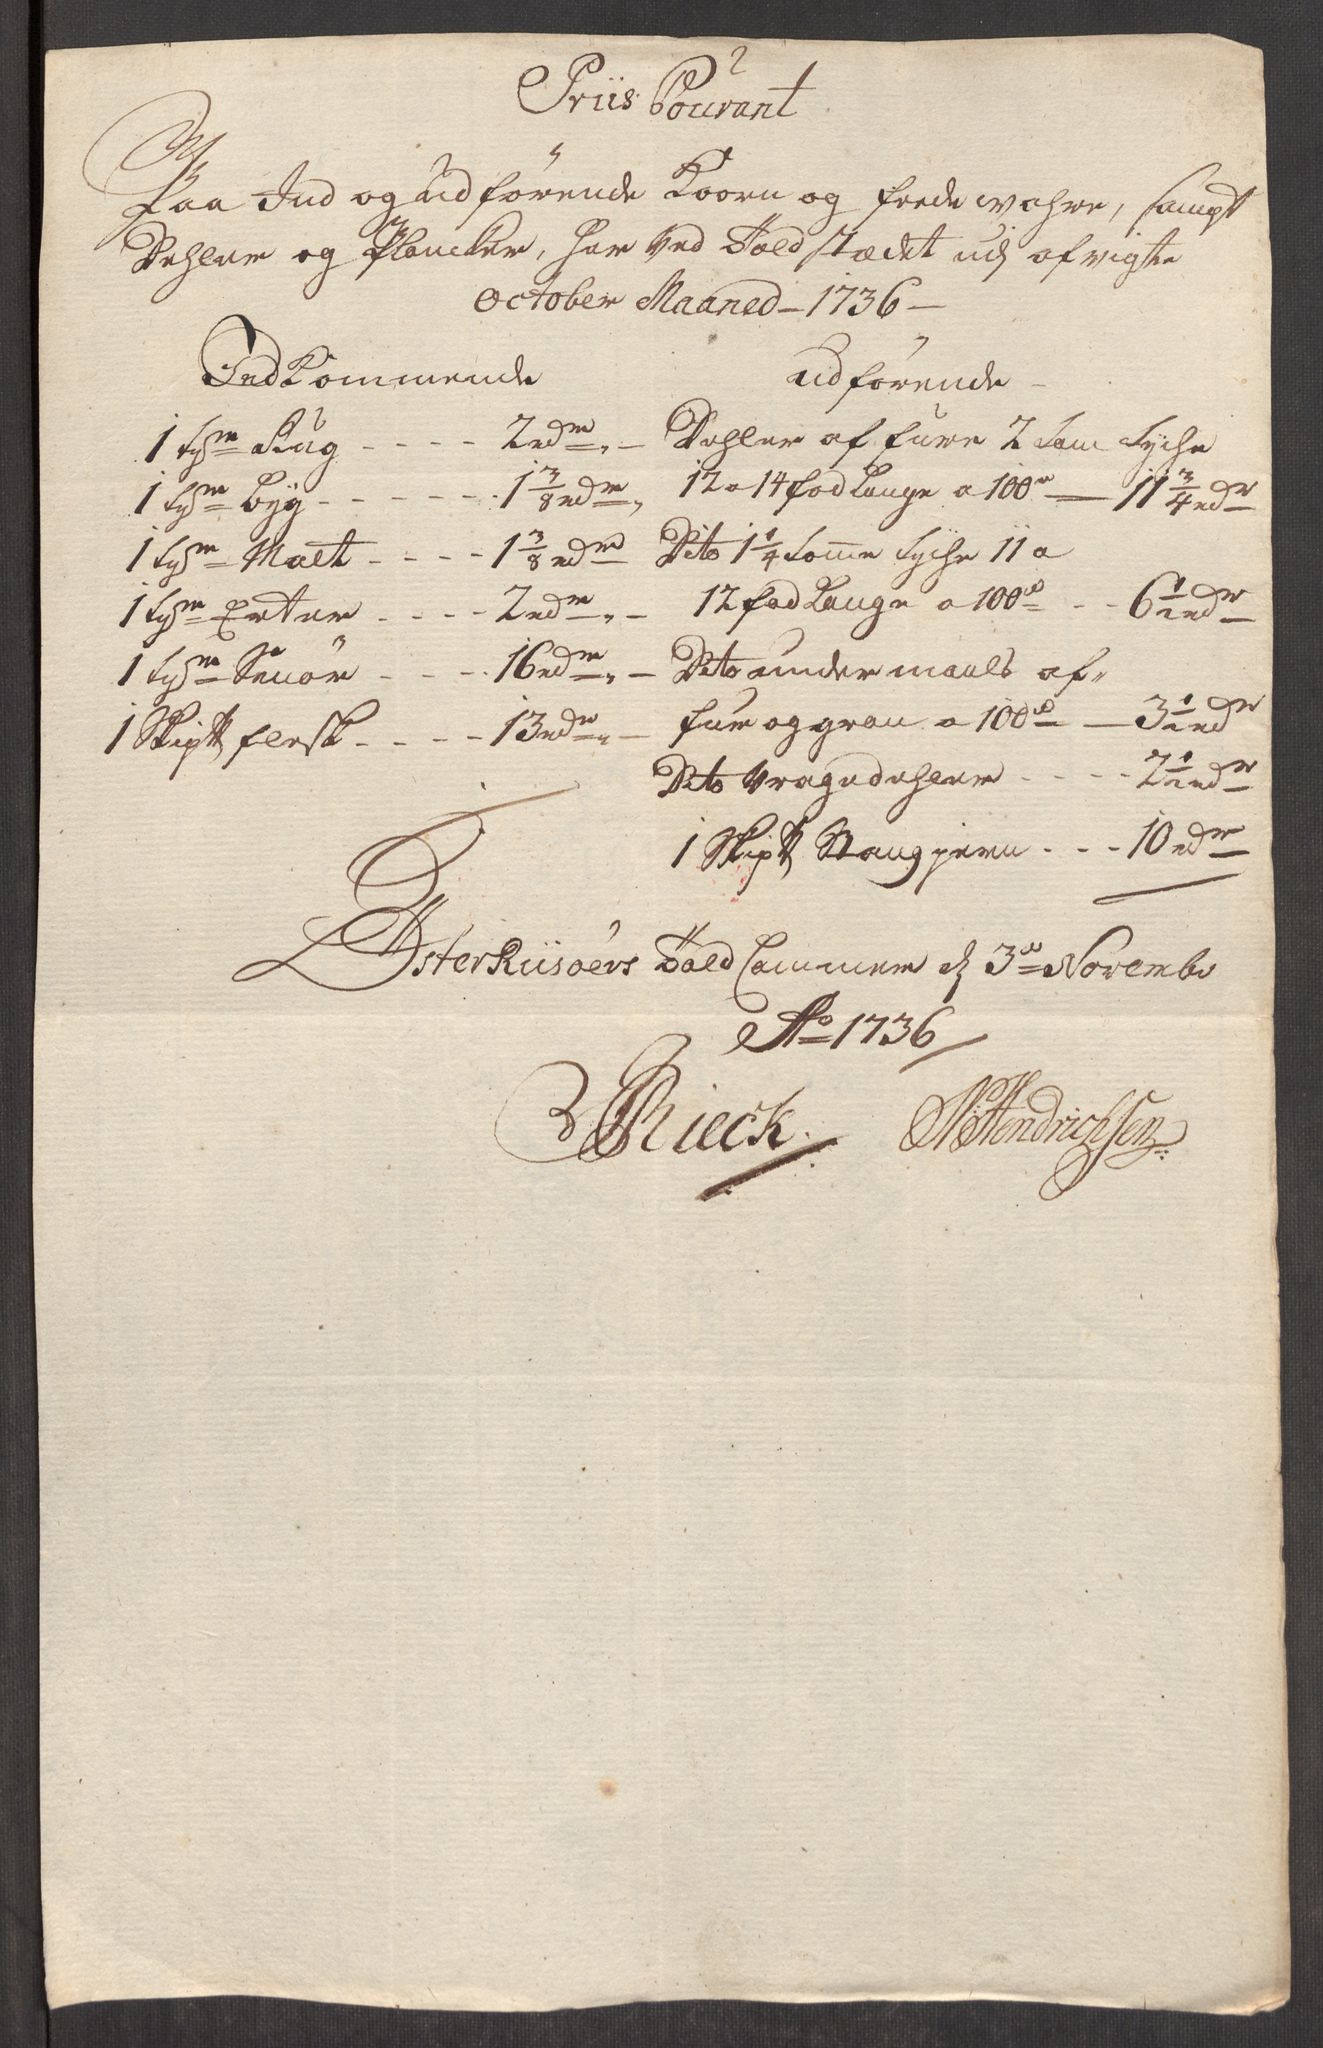 Priis Courant
Paa Ind og Udförende Koorn og fede wahre, sampt
Dehler og Plancker, her ved Toldstædet udj afvigte
October Maaned - 1736 -
IndKommende
1 tønde Rug - - - - 2 rdr
1 tønde Byg - - - - - 1 3/8 rdr
1 tønde Malt - - - - 1 3/8 rdr
1 tønde Erter - - - 2 rdr
1 tønde Smör - - - 16 rdr
1 Skip℔ flesk - - - - 13 rdr
Udförende -
Dehler af fure 2 tom tyche
12 a 14 fod Lange a 100de — 11 3/4 rdr
Dito 1 1/4 tomme tyche 11 a
12 fod Lange a 100de - - 6 1/2 rdr
Dito undermaals af
fur og gran a 100de — 3 1/2 rdr
Dito Vragedehler - - - - 2 1/2 rdr
1 Skip℔ Stangjern - - - 10 rdr
ÖsterRiisöers Told Cammer d 3de Novembr
Ao 1736
Rieck. Hendrichsen